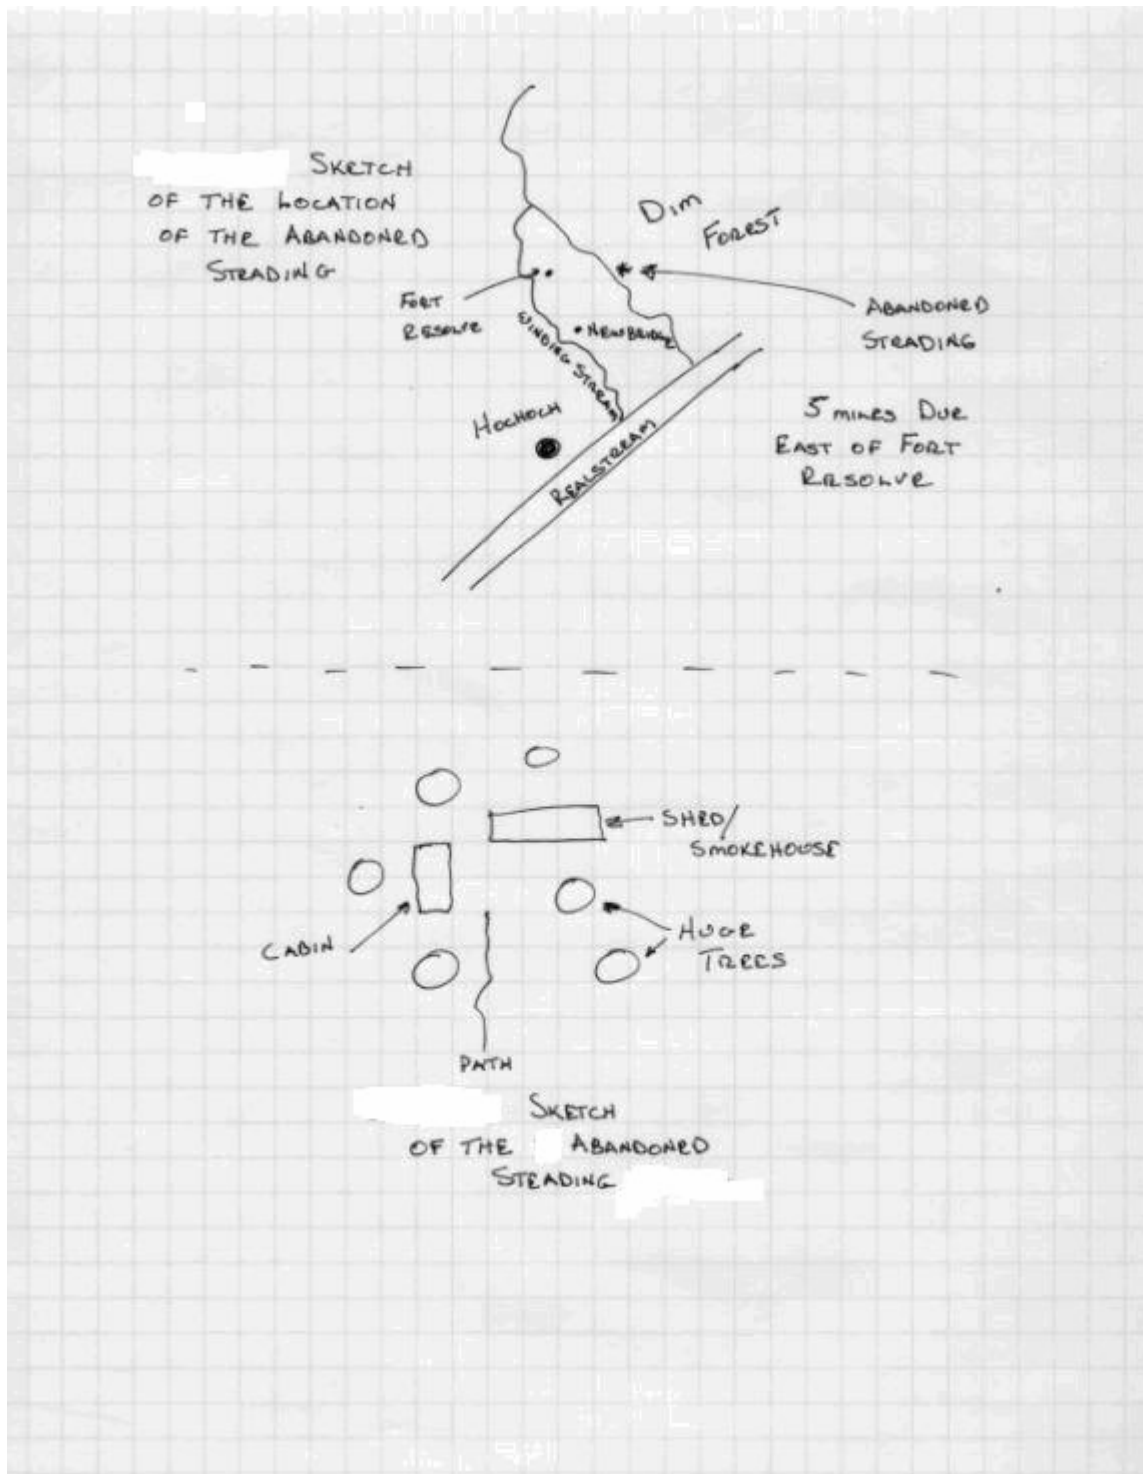 SKETCH
OF THE LOCATION
OF THE ABANDONED
STEADING
DIM
FOREST
FORT
RESOLVE
WINDING STREAM
NEWBRIDGE
ABANDONED
STEADING
HOCHOCH
REALSTREAM
5 MILES DUE
EAST OF FORT
RESOLVE
SHED/
SMOKEHOUSE
CABIN
HUGE
TREES
PATH
SKETCH
OF THE ABANDONED
STEADING